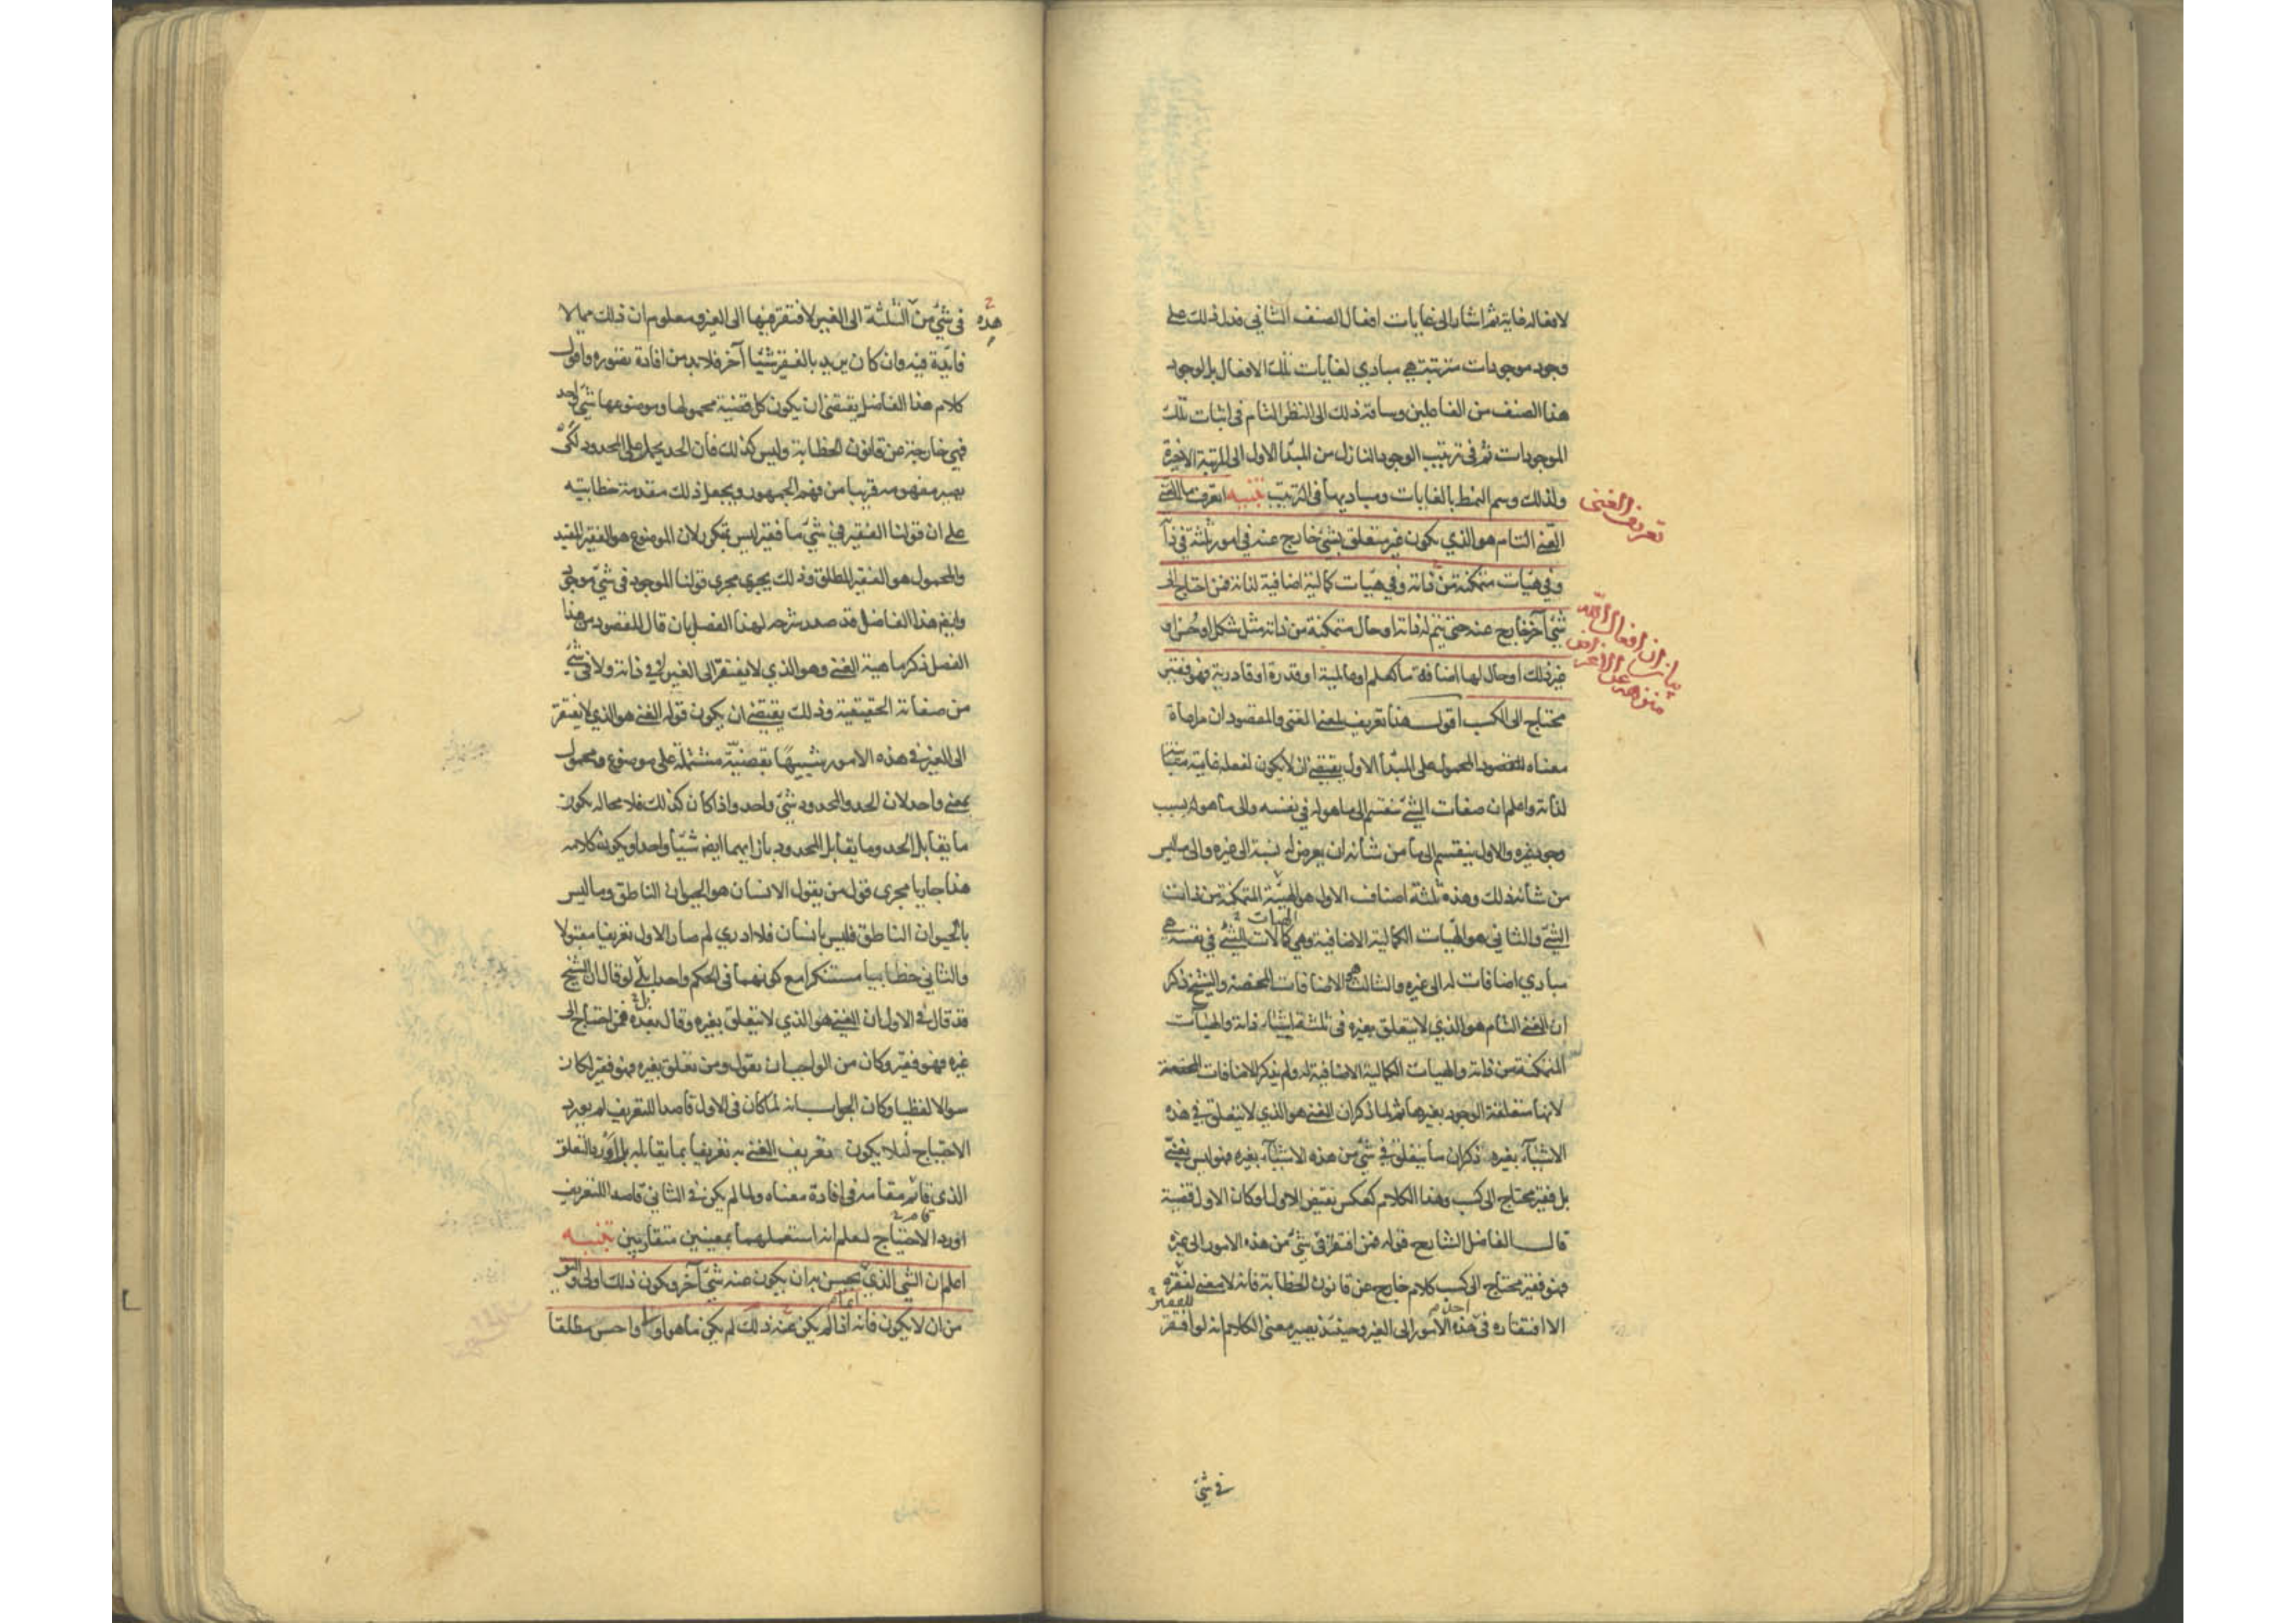 لافعاله غاية ثم اشار الى غايات افعال الصنف الثاني فدل ذلك على
وجود موجودات مترتبة هي مبادي لغايات تلك الافعال بل لوجود
هذا الصنف من الفاعلين وساقه ذلك الى النظر التام في اثبات تلك
الموجودات ثم في ترتيب الوجود النازل من المبدأ الاول الى المرتبة الاخيرة
ولذلك وسم النمط بالغايات ومباديها في الترتيب تنبيه اتعرف ما الغني
تعريف الغنى
الغني التام هو الذي يكون غير متعلق بشئ خارج عنه في امور ثلثة في ذاته
وفي هيئات متمكنة من ذاته وفي هيئات كمالية اضافية لذاته فمن احتاج الى
شئ آخر خارج عنه حتى يتم له ذاته او حال متمكنة من ذاته مثل شكل او حسن او
بيان ان افعال الله منزهة عن الاغراض
غير ذلك او حال لها اضافة ما كعلم او عالمية او قدرة او قادرية فهو فقير
محتاج الى الكسب اقول هذا تعريف لمعنى الغني والمقصود ان مراعاة
معناه المقصود المحمول على المبدأ الاول يقتضي ان لا يكون لفعله غاية مباينة
لذاته واعلم ان صفات الشئ تنقسم الى ما هو له في نفسه والى ما هو له بسبب
وجود غيره والاول ينقسم الى ما من شانه ان يعرض له نسبة الى غيره والى ما ليس
من شانه ذلك وهذه ثلثة اصناف الاول هو الهيئة المتمكنة من ذات
الشئ والثاني هو الهيات الكمالية الاضافية وهي كمالات الشئ في نفسه هي
مبادي اضافات له الى غيره والثالث هو الاضافات المحضة والشيخ ذكر
ان الغني التام هو الذي لا يتعلق بغيره في ثلثة اشياء ذاته والهيئات
المتمكنة من ذاته والهيات الكمالية الاضافية له ولم يذكر الاضافات المحضة
لانها متعلقة الوجود بغيرها ثم لما ذكر ان الغني هو الذي لا يتعلق في هذه
الاشياء بغيره ذكر ان ما يتعلق في شئ من هذه الاشياء بغيره فهو ليس بغني
بل فقير محتاج الى كسب وهذا الكلام كعكس نقيض الاول لو كان الاول قضية
قال الفاضل الشارح قوله فمن افتقر في شئ من هذه الامور الى غيره
فهو فقير محتاج الى كسب كلام خارج عن قانون الخطابة فانه لا معنى لفقره
الا افتقاره في هذه الامور الى الغير وحينئذ يصير معنى الكلام انه لو افتقر
في شئ
هذه في شئ من الثلثة الى الغير لافتقر فيها الى الغير ومعلوم ان ذلك مما لا
فائدة فيه وان كان يريد بالفقير شيئا آخر فلا بد من افادة تصوره واقول
كلام هذا الفاضل يقتضي ان يكون كل قضية محمولها وموضوعها شئ واحد
فهي خارجة عن قانون الخطابة وليس كذلك فان الحد يحمل على المحدود لكي
يصير مفهومه قريبا من فهم الجمهور ويجعل ذلك مقدمة خطابية
على ان قولنا الفقير في شئ ما فقير ليس بتكرر لان الموضوع هو الفقير المقيد
والمحمول هو الفقير المطلق وذلك يجري مجرى قولنا الموجود في شئ موجود
وايضا هذا الفاضل قد صدر شرحه لهذا الفصل بان قال المقصود من هذا
الفصل ذكر ماهية الغني وهو الذي لا يفتقر الى الغير لا في ذاته ولا في شئ
من صفاته الحقيقية وذلك يقتضي ان يكون قوله الغني هو الذي لا يفتقر
الى الغير في هذه الامور شبيها بقضية مشتملة على موضوع ومحمول
بمعنى واحد لان الحد والمحدود شئ واحد واذا كان كذلك فلا محالة يكون
ما يقابل الحد وما يقابل المحدود بازائهما ايضا شيئا واحدا ويكون كلامه
هذا جاريا مجرى قول من يقول الانسان هو الحيوان الناطق وما ليس
بالحيوان الناطق فليس بانسان فلا ادري لم صار الاول تعريفا مقبولا
والثاني خطابيا مستنكرا مع كونهما في الحكم واحدا بلى لو قال ان الشيخ
قد قال في الاول ان الغني هو الذي لا يتعلق بغيره وقال بعده فمن احتاج الى
غيره فهو فقير وكان من الواجب ان يقول ومن تعلق بغيره فهو فقير لكان
سوالا لفظيا وكان الجواب انه لما كان في الاول قاصدا للتعريف لم يورد
الاحتياج لئلا يكون تعريف الغني به تعريفا بما يقابله بل اورد التعلق
الذي قائم مقامه في افادة معناه ولما لم يكن في الثاني قاصدا للتعريف
اورد الاحتياج ليعلم انه استعملهما بمعنيين متقاربين تنبيه
اعلم ان الشئ الذي يحسن به ان يكون عنه شئ آخر ويكون ذلك اولى واليق
من ان لا يكون فانه اذا لم يكن عنه ذلك لم يكن ما هو اولى واحسن مطلقا